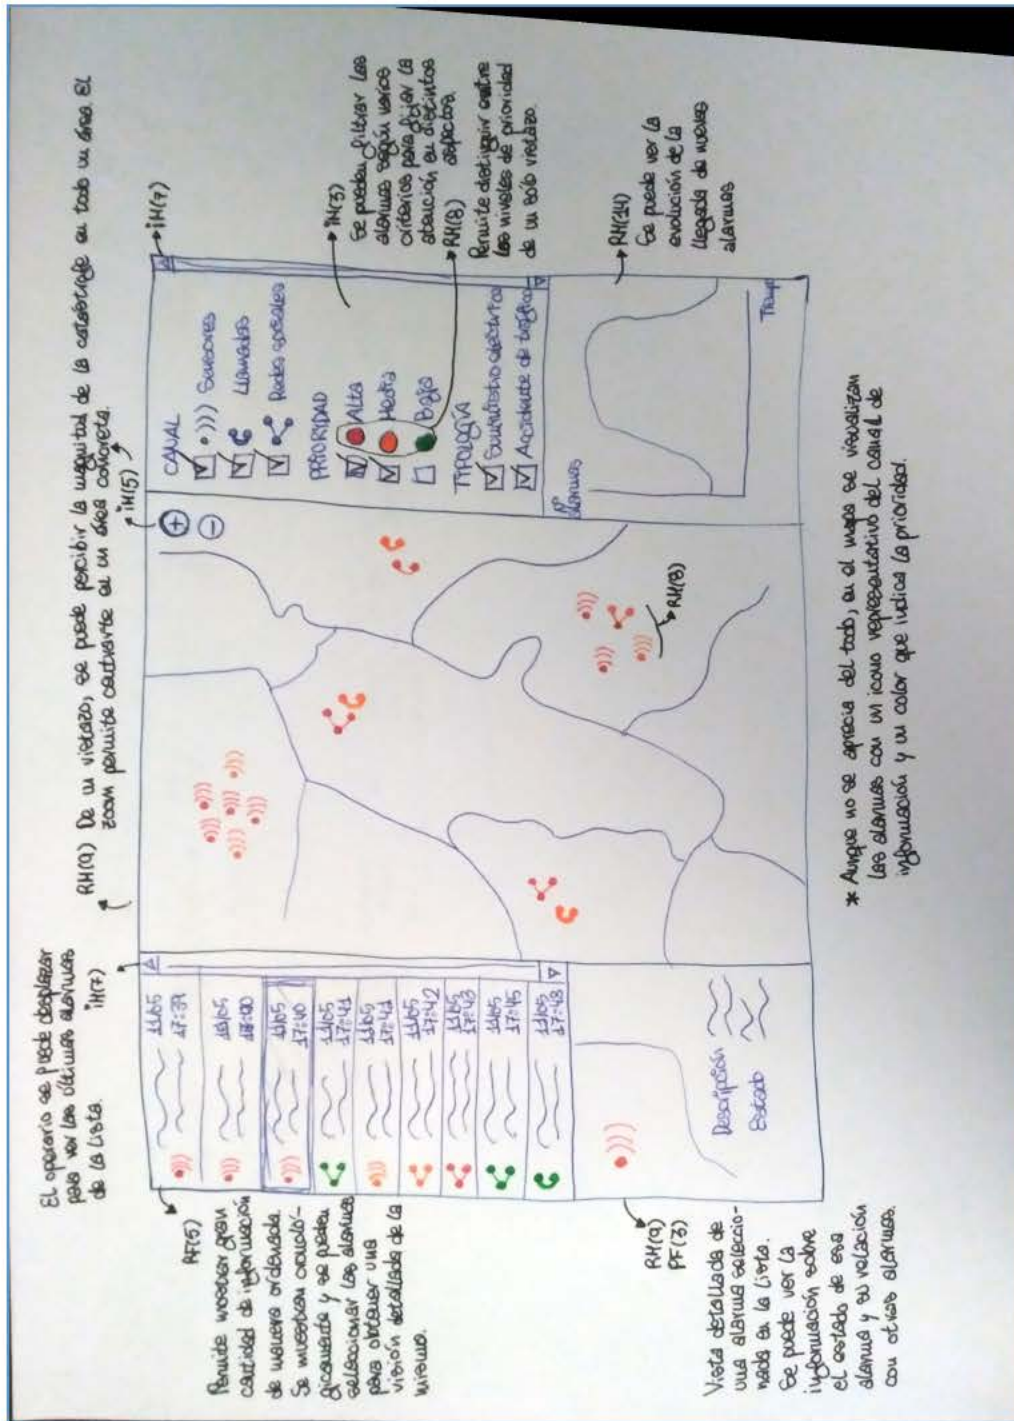 El operario se puede desplazar
para ver las últimas alarmas
de la lista.
iH(7)
RH(9) De un vistazo, se puede percibir la magnitud de la catástrofe en todo un área. El
zoom permite centrarte en un área concreta.
iH(5)
iH(7)
RF(5)
Permite mostrar gran
cantidad de información
de manera ordenada.
Se muestran cronoló-
gicamente y se pueden
seleccionar las alarmas
para obtener una
visión detallada de la
misma.
11/05
17:39
11/05
17:40
11/05
17:41
11/05
17:41
11/05
17:42
11/05
17:43
11/05
17:45
11/05
17:48
Descripción
Estado
RH(9)
PF(3)
Vista detallada de
una alarma seleccio-
nada en la lista.
Se puede ver la
información sobre
el estado de esa
alarma y su relación
con otras alarmas.
+
-
RH(8)
CANAL
V Sensores
V Llamadas
V Redes sociales
PRIORIDAD
V Alta
V Media
Baja
TIPOLOGÍA
V Suministro eléctrico
V Accidente de tráfico
Nº
alarmas
Tiempo
iH(3)
Se pueden filtrar las
alarmas según varios
criterios para fijar la
atención en distintos
aspectos.
RH(8)
Permite distinguir entre
los niveles de prioridad
de un solo vistazo.
RH(14)
Se puede ver la
evolución de la
llegada de nuevas
alarmas
* Aunque no se aprecia del todo, en el mapa se visualizan
las alarmas con un icono representativo del canal de
información y un color que indica la prioridad.